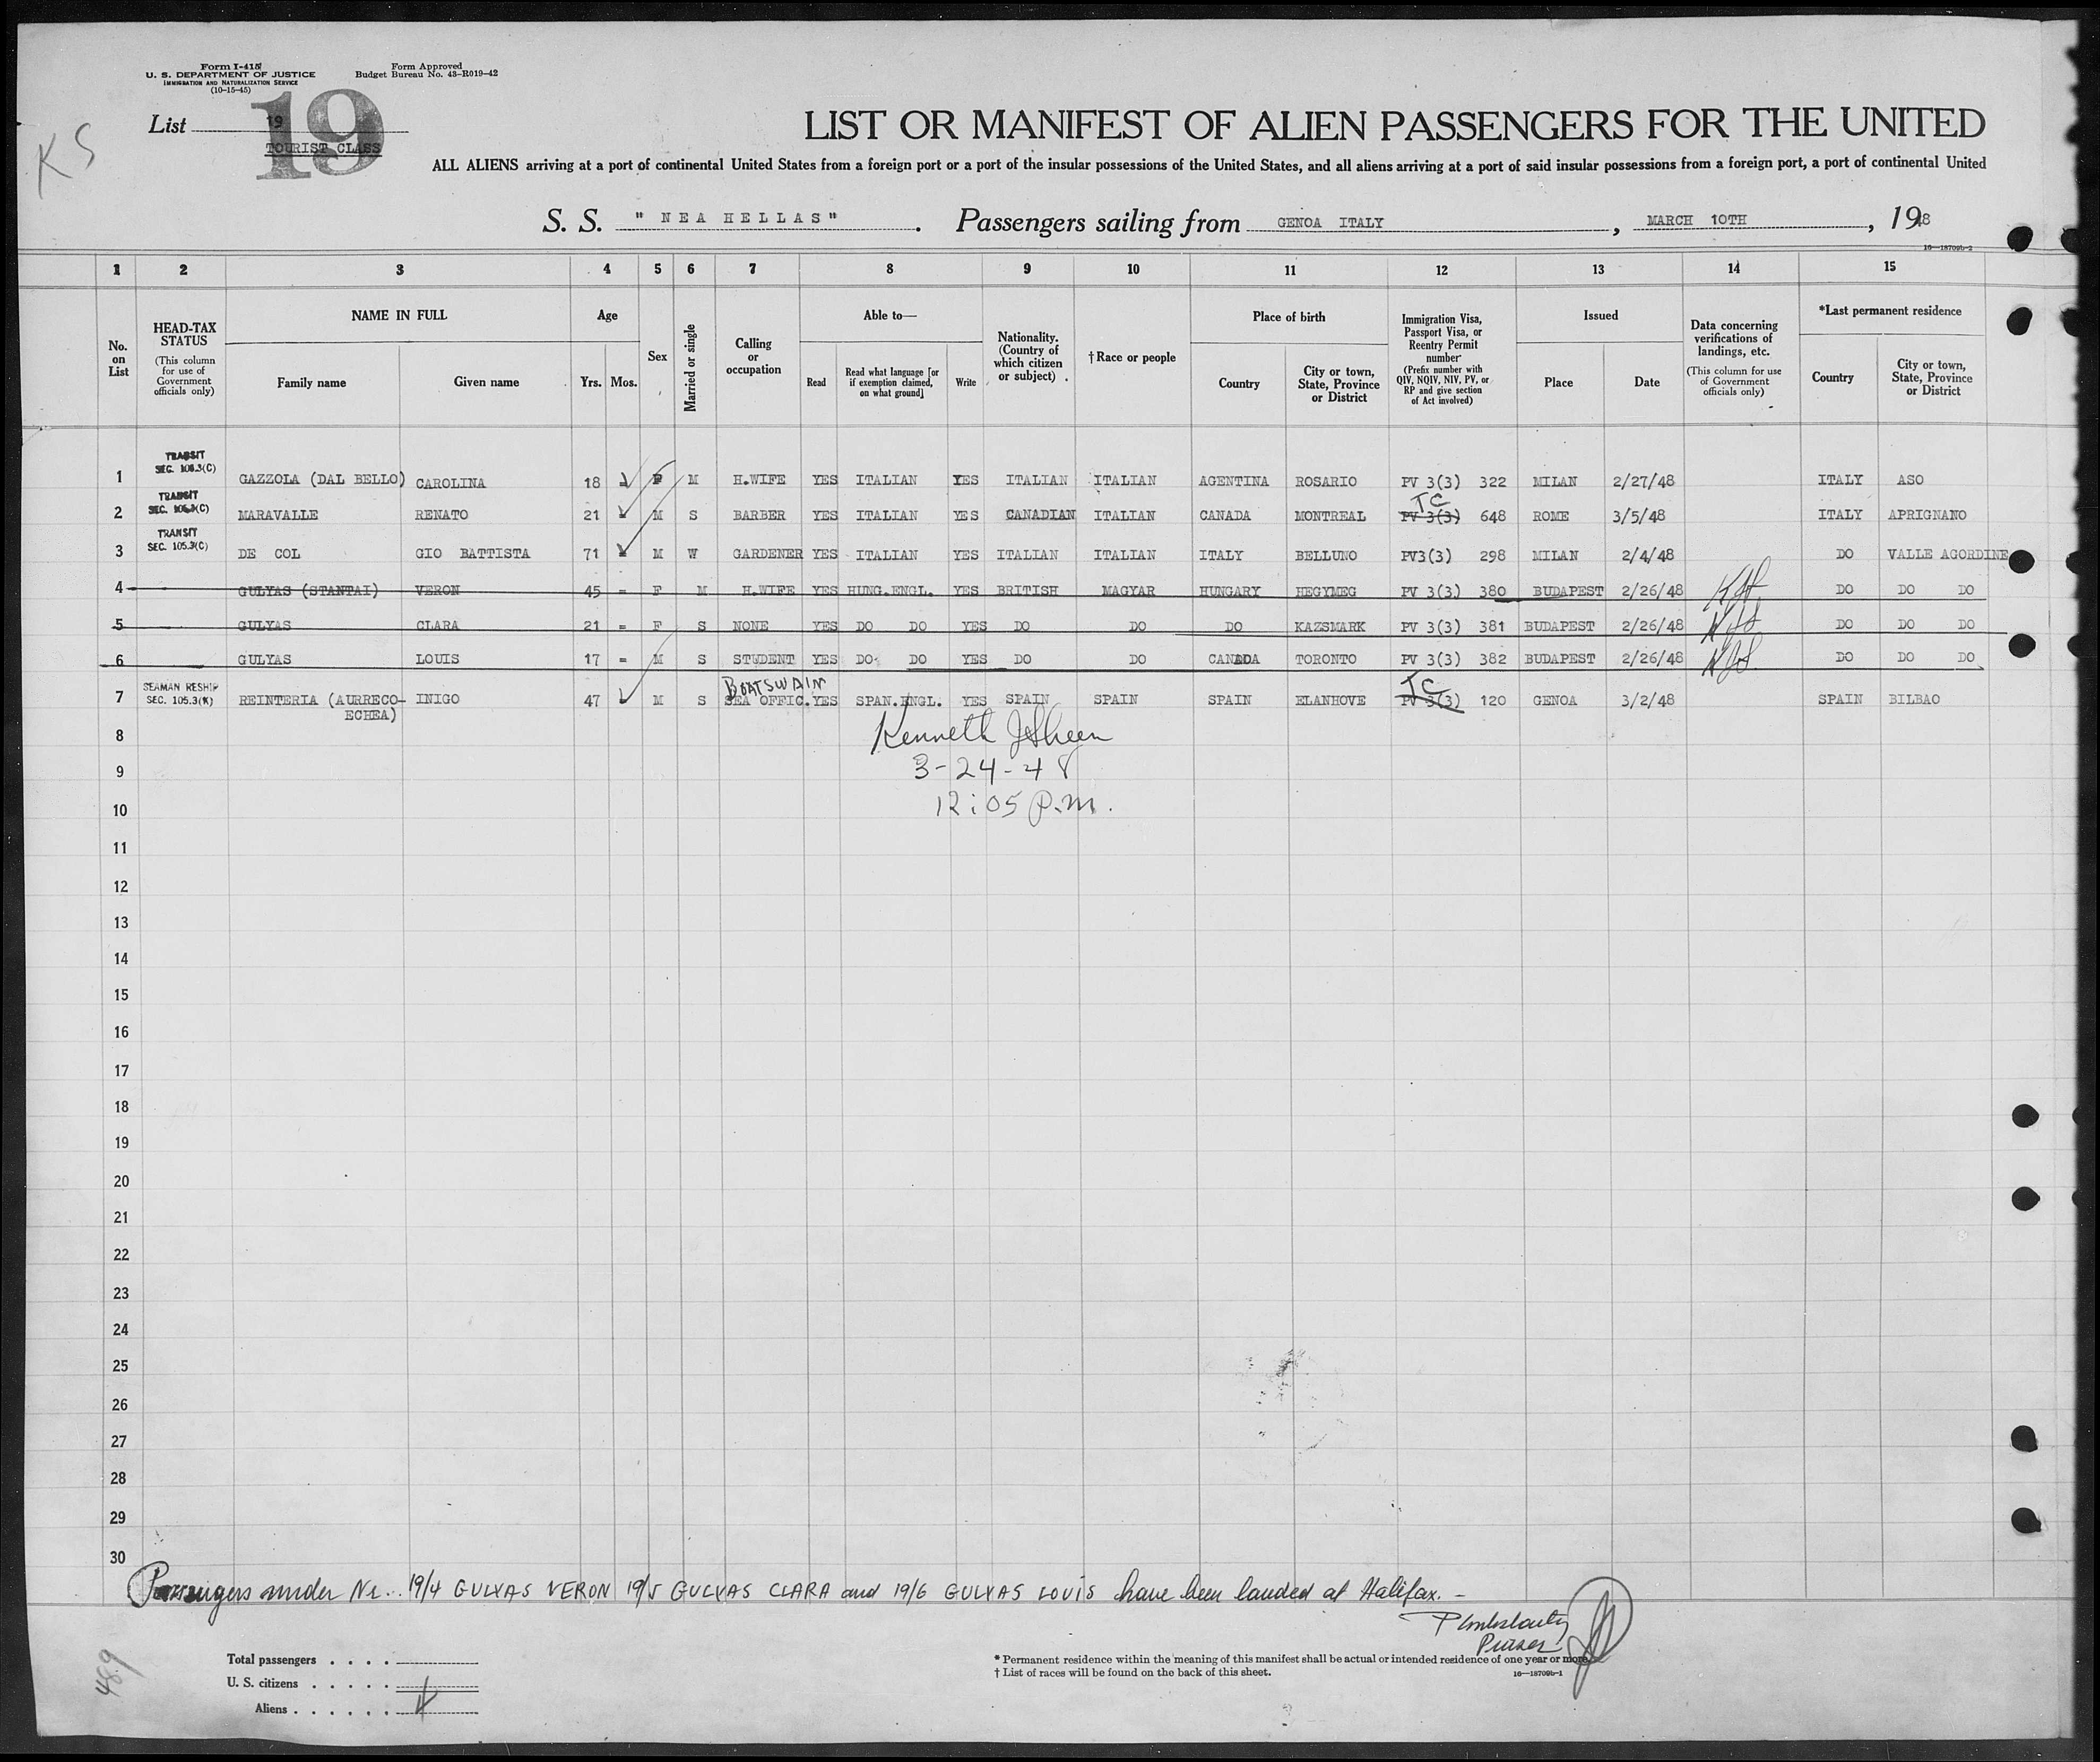 Form I-415
U. S. DEPARTMENT OF JUSTICE
IMMIGRATION AND NATURALIZATION SERVICE
(10-15-45)
Form Approved
Budget Bureau No. 43-R019-42
KS
List 19
19
TOURIST CLASS
LIST OR MANIFEST OF ALIEN PASSENGERS FOR THE UNITED
ALL ALIENS arriving at a port of continental United States from a foreign port or a port of the insular possessions of the United States, and all aliens arriving at a port of said insular possessions from a foreign port, a port of continental United
S. S. " NEA HELLAS". Passengers sailing from GENOA ITALY, MARCH 10TH, 1948
16—18709b-2
1 2 3 4 5 6 7 8 9 10 11 12 13 14 15
No. on List
HEAD-TAX STATUS
(This column for use of Government officials only)
NAME IN FULL
Family name
Given name
Age
Yrs. Mos.
Sex
Married or single
Calling or occupation
Able to—
Read
Read what language [or if exemption claimed, on what ground]
Write
Nationality. (Country of which citizen or subject)
†Race or people
Place of birth
Country
City or town, State, Province or District
Immigration Visa, Passport Visa, or Reentry Permit number
(Prefix number with QIV, NQIV, NIV, PV, or RP and give section of Act involved)
Issued
Place
Date
Data concerning verifications of landings, etc.
(This column for use of Government officials only)
*Last permanent residence
Country
City or town, State, Province or District
TRANSIT
SEC. 105.3(C)
1 GAZZOLA (DAL BELLO) CAROLINA 18 - F M H.WIFE YES ITALIAN YES ITALIAN ITALIAN AGENTINA ROSARIO PV 3(3) 322 MILAN 2/27/48 ITALY ASO
TRANSIT
SEC. 105.3(C)
TC
2 MARAVALLE RENATO 21 - M S BARBER YES ITALIAN YES CANADIAN ITALIAN CANADA MONTREAL PV 3(3) 648 ROME 3/5/48 ITALY APRIGNANO
TRANSIT
SEC. 105.3(C)
3 DE COL GIO BATTISTA 71 - M W GARDENER YES ITALIAN YES ITALIAN ITALIAN ITALY BELLUNO PV3(3) 298 MILAN 2/4/48 DO VALLE AGORDINE
4 GULYAS (STANTAI) VERON 45 - F M H.WIFE YES HUNG.ENGL. YES BRITISH MAGYAR HUNGARY HEGYMEG PV 3(3) 380 BUDAPEST 2/26/48 DO DO DO
5 GULYAS CLARA 21 - F S NONE YES DO DO YES DO DO DO KAZSMARK PV 3(3) 381 BUDAPEST 2/26/48 DO DO DO
6 GULYAS LOUIS 17 - M S STUDENT YES DO DO YES DO DO CANADA TORONTO PV 3(3) 382 BUDAPEST 2/26/48 DO DO DO
SEAMAN RESHIP
SEC. 105.3(K)
BOATSWAIN
TC
7 REINTERIA (AURRECO- INIGO 47 M S SEA OFFIC. YES SPAN.ENGL. YES SPAIN SPAIN SPAIN ELANHOVE PV 3(3) 120 GENOA 3/2/48 SPAIN BILBAO
ECHEA)
8
Kenneth J Sheen
9
3-24-48
10
12:05 P.M.
11
12
13
14
15
16
17
18
19
20
21
22
23
24
25
26
27
28
29
30
Passengers under Nr. 19/4 GULYAS VERON 19/5 GULYAS CLARA and 19/6 GULYAS LOUIS have been landed at Halifax. -
Purser
489
Total passengers . . . .
U. S. citizens . . . . .
Aliens . . . . . . 4
* Permanent residence within the meaning of this manifest shall be actual or intended residence of one year or more.
† List of races will be found on the back of this sheet.
16—18709b-1